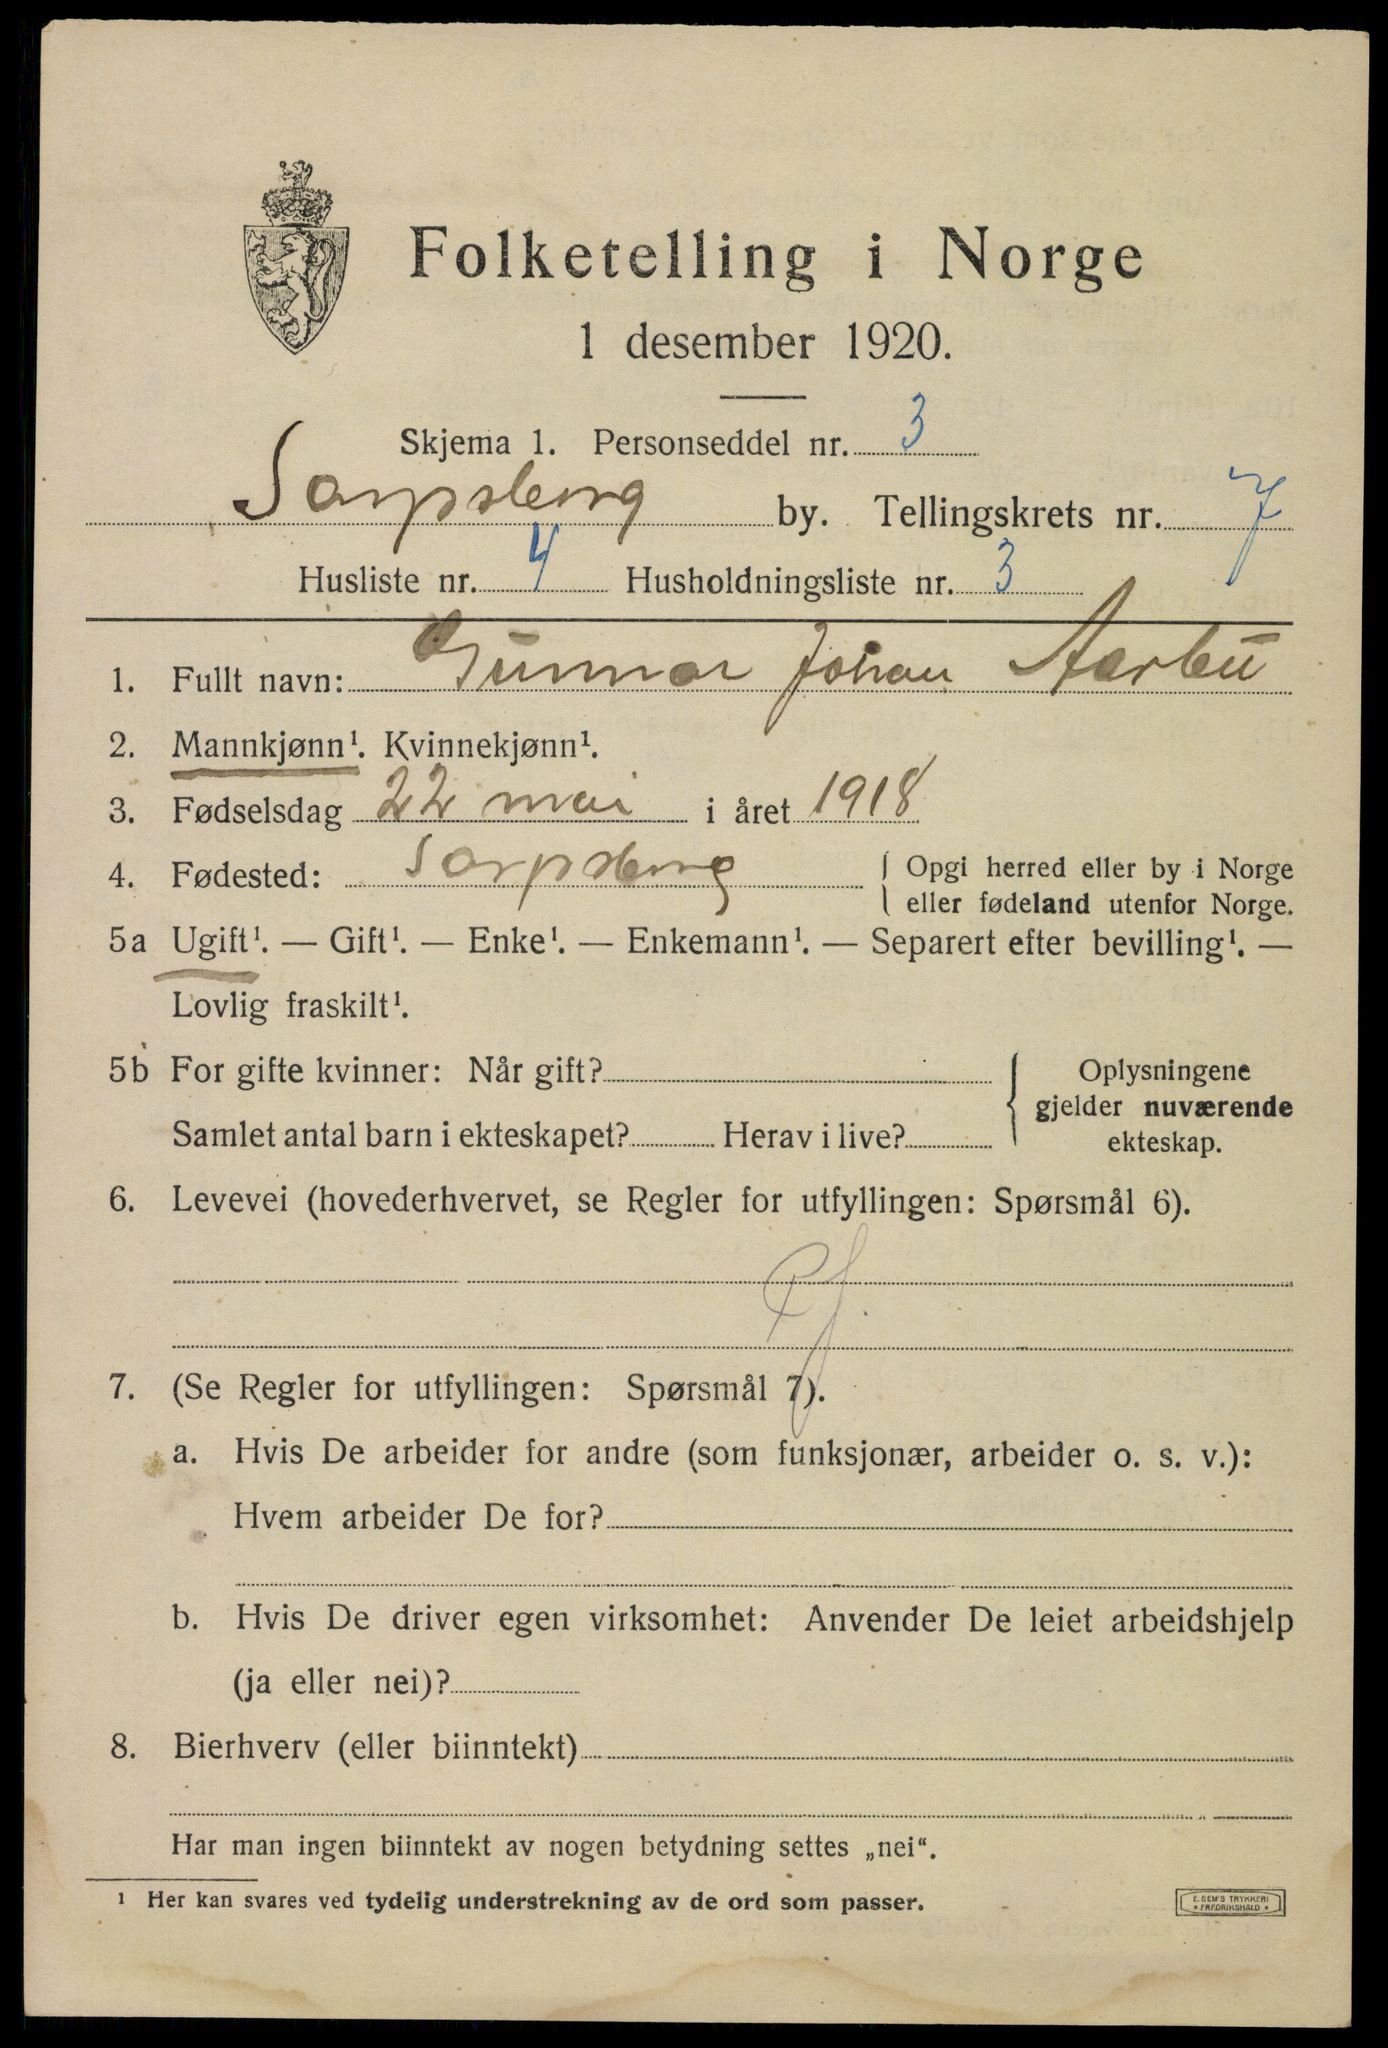 Folketelling i Norge
1 desember 1920.
Skjema 1. Personseddel nr. 3
Sarpsborg by. Tellingskrets nr. 7
Husliste nr. 4 Husholdningsliste nr. 3
1. Fullt navn: Gunnar Johan Aarbu
2. Mannkjønn¹. Kvinnekjønn¹.
3. Fødselsdag 22 mai i året 1918
4. Fødested: Sarpsborg
Opgi herred eller by i Norge
eller fødeland utenfor Norge.
5a Ugift¹. — Gift¹. — Enke¹. — Enkemann¹. — Separert efter bevilling¹. —
Lovlig fraskilt¹.
5b For gifte kvinner: Når gift?
Samlet antal barn i ekteskapet? Herav i live?
Oplysningene
gjelder nuværende
ekteskap.
6. Levevei (hovederhvervet, se Regler for utfyllingen: Spørsmål 6).
7. (Se Regler for utfyllingen: Spørsmål 7).
a. Hvis De arbeider for andre (som funksjonær, arbeider o. s. v.):
Hvem arbeider De for?
b. Hvis De driver egen virksomhet: Anvender De leiet arbeidshjelp
(ja eller nei)?
8. Bierhverv (eller biinntekt)
Har man ingen biinntekt av nogen betydning settes „nei“.
¹ Her kan svares ved tydelig understrekning av de ord som passer.
E. SEM'S TRYKKERI
* FREDRIKSHALD *